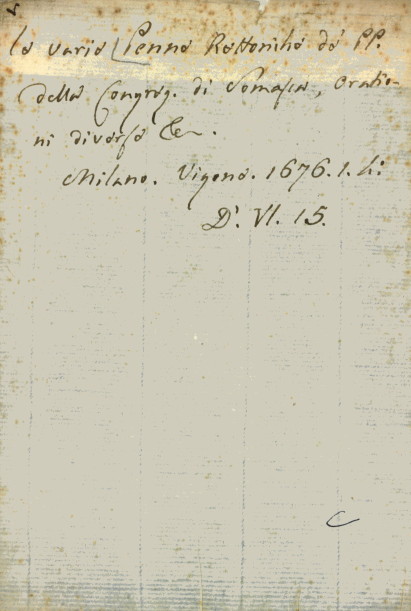 Le varie Penne Rettoriche de PP.
della Congreg. di Somasca, Oratio-
ni diverse &c.
Milano. Vigone. 1676. 1. 4:
D. VI. 15.
C